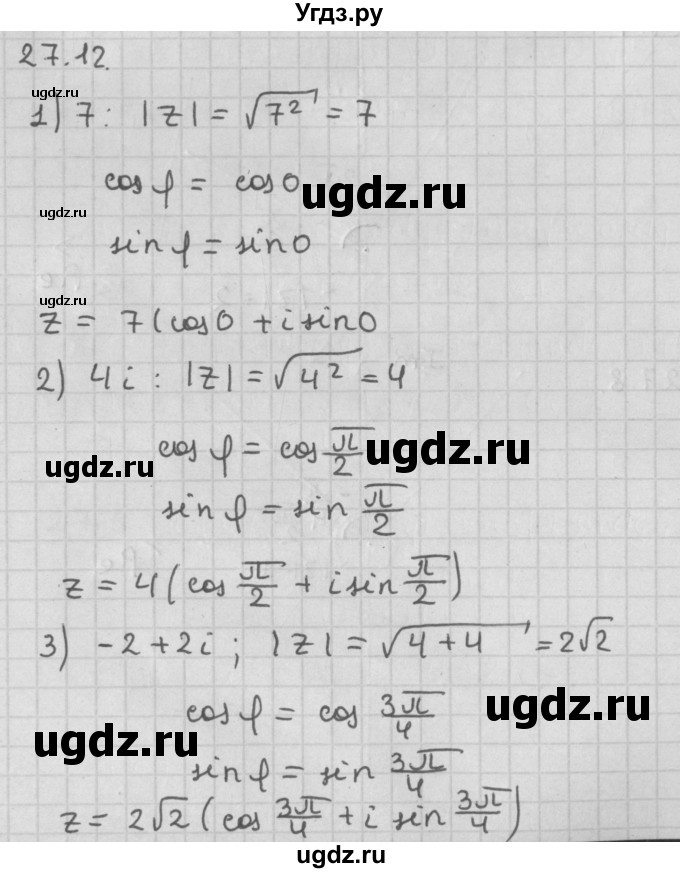 Угдз.ру
27.12.
ugdz.ru
1) 7: |z| = √7² = 7
cos φ = cos 0
ugdz.ru
ugdz.ru
sin φ = sin 0
ugdz.ru
z = 7(cos 0 + i sin 0
2) 4i : |z| = √4² = 4
cos φ = cos π/2
ugdz.ru
ugdz.ru
sin φ = sin π/2
z = 4(cos π/2 + i sin π/2)
3) -2+2i ; |z| = √4+4 = 2√2
cos φ = cos 3π/4
ugdz.ru
ugdz.ru
sin φ = sin 3π/4
z = 2√2 (cos 3π/4 + i sin 3π/4)
ugdz.ru